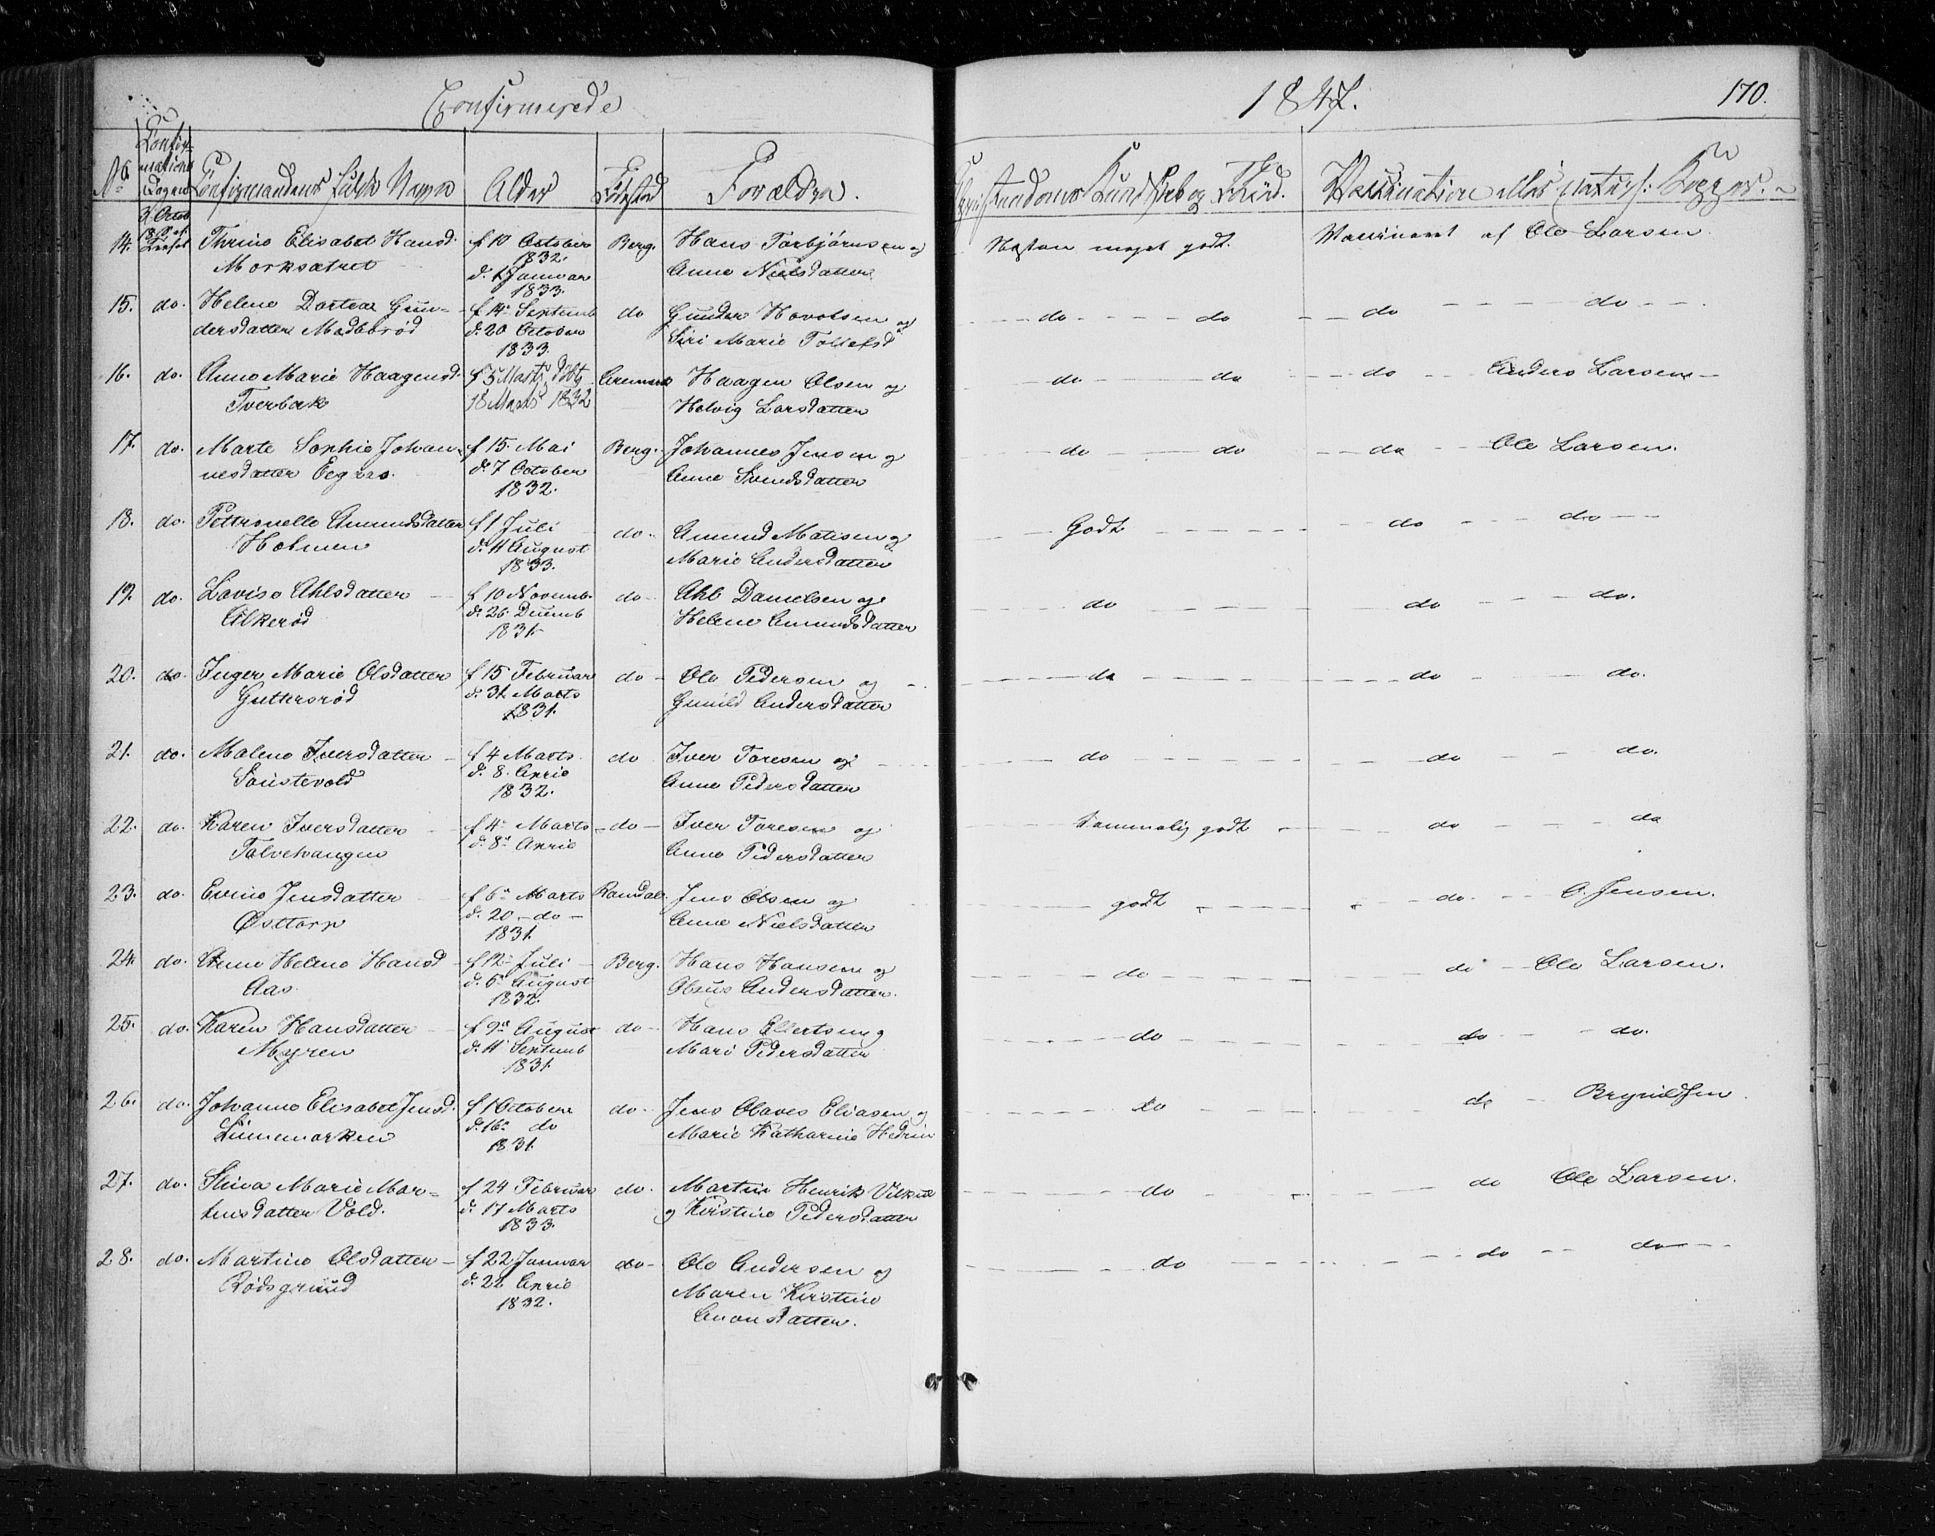 Confirmerede
1847.
170.
No Confirmations Dagen Confirmandens fulde Navn Alder Fødested Forældre. Christendoms Kundskab og Flid. Vaccination eller naturl: Kopper.
14. 3 Octob Thrine Elisabet Hansd. f 10 October Berg. Hans Torbjørnsen og Næsten meget godt. Vaccineret af Ole Larsen.
Morksætret 1832. Anne Nielsdatter
d. 1 Januar
1833.
15. do. Helene Dortea Gun- f 14 Septemb do Gunder Hovelsen og do do do do
dersdatter d. 20 October Siri Marie Tollefsd
1833.
16. do. Anne Marie Haagensd. f 5 Marts døbt Aremark Haagen Olsen og do do do Anders Larsen
Tverbæk 18 Marts 1832 Helvig Larsdatter
17. do. Marte Sophie Johan- f 15. Mai Berg. Johannes Jensen og do do do Ole Larsen.
nesdatter d. 7 October Anne Svendsdatter
1832.
18. do. Pettronelle Amundsdatter f 1 Juli do. Amund Matisen og Godt do do
Holmen d. 11 August Marie Andersdatter
1833.
19. do. Lovise Ahlsdatter f 10 Novemb. do Ahl Danielsen og do do do.
Alkerød d. 26 Decemb Helene Amundsdatter
1831.
20. do. Inger Marie Olsdatter f 15 Februar do Ole Pedersen og do do do.
Guttersrød d. 31. Marts Gunild Andersdatter
1831.
21. do. Malene Iversdatter f 4 Marts. do Iver Toresen og do do do.
d. 8. April Anne Pedersdatter
1832.
22. do. Karen Iversdatter f 4 Marts do Iver Toresen og Temmelig godt do do
d. 8 April Anne Pedersdatter
23. do. Evine Jensdatter f 6 Marts Jens Olsen og godt do. O. Jensen.
Østtorp d. 20 - do - Anne Nielsdatter
1831.
24. do. Anne Helene Hansd f 12 Juli Berg. Hans Hansen og do do Ole Larsen.
Aas. d. 5 August Andersdatter.
1832.
25. do. Karen Hansdatter f 9 August do Hans Ellertsen og do do do.
Myren d. 11 Septemb Mari Pedersdatter
1831.
26. do. Johanne Elisabet Jensd. f 1 October do. Jens Olaves Eliasen og do do Brynildsen
d. 16 do Marie Katharine
1831.
27. do. Stina Marie Mar- f 24 Februar do. Martin Henrik do do Ole Larsen.
tensdatter Vold. d. 17 Marts og Kirstine Pedersdatter
1833.
28. do. Martine Olsdatter f 22 Januar do Ole Andersen og do do do
Rødsgrund d. 22 April Maren Kirstine
1832.